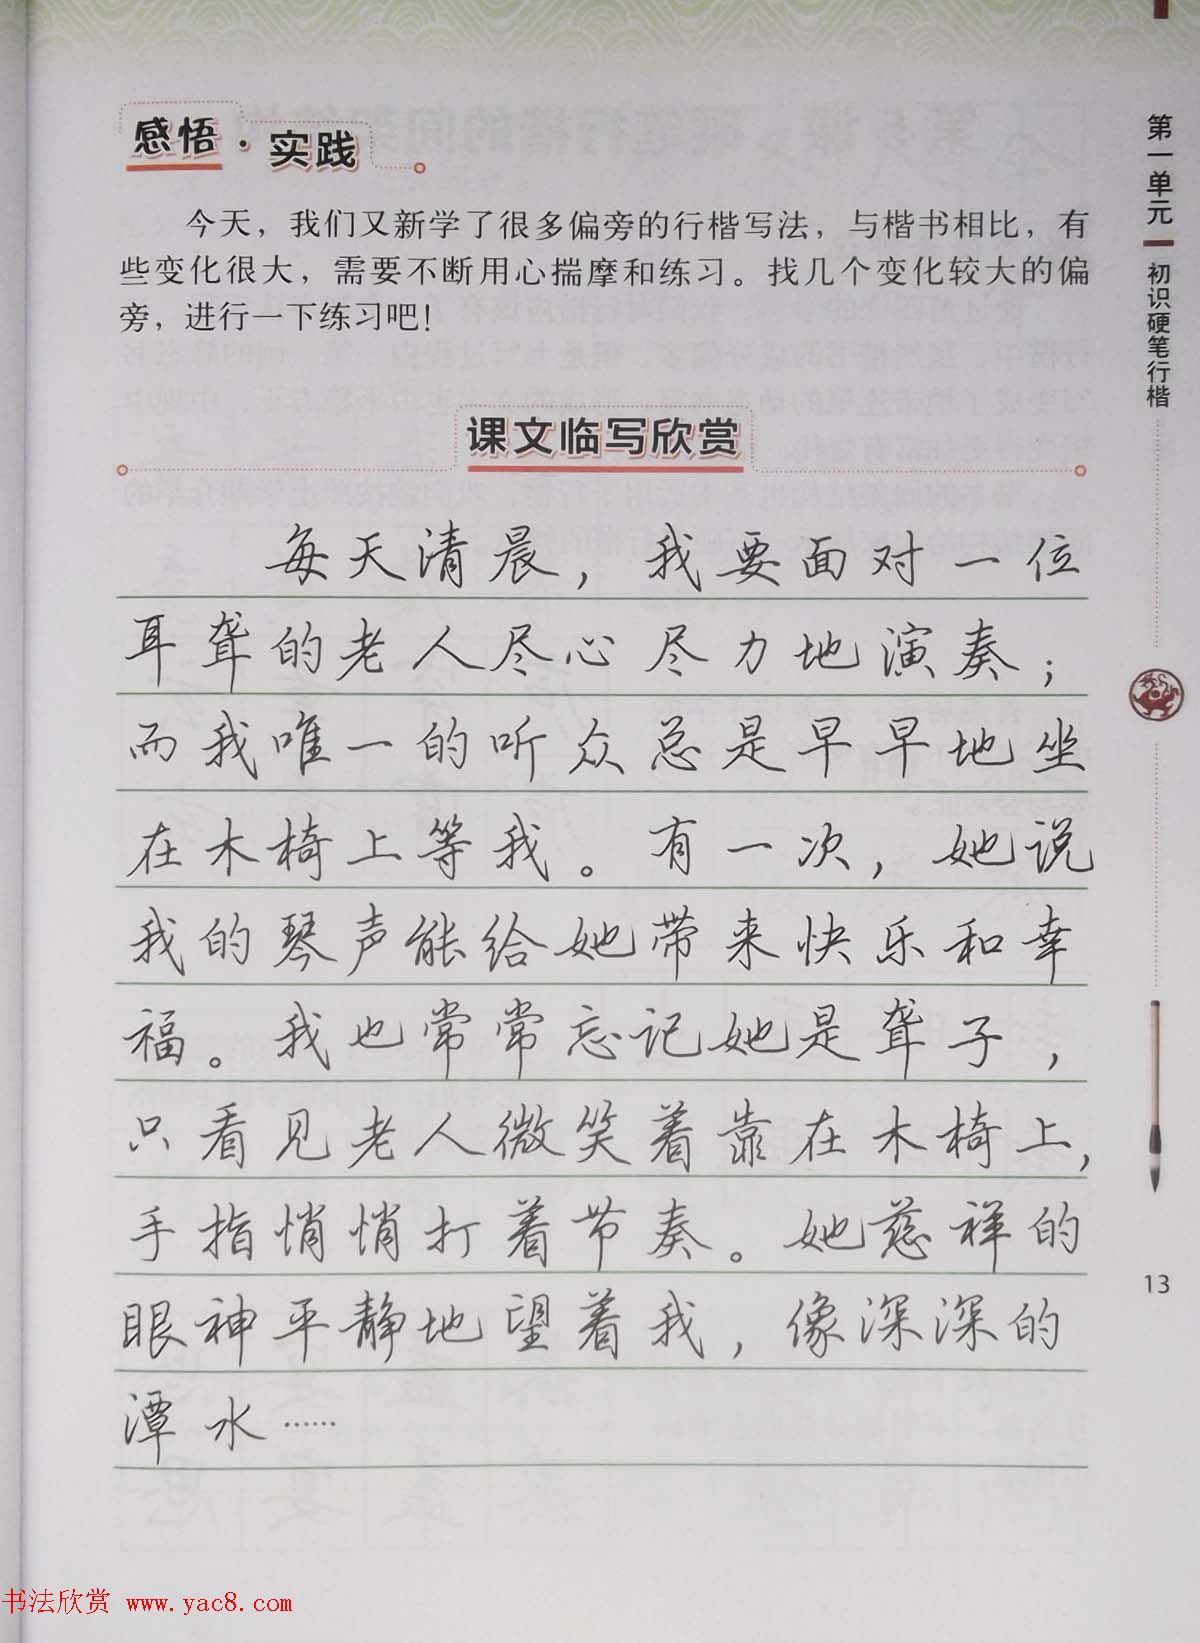 感悟·实践
今天，我们又新学了很多偏旁的行楷写法，与楷书相比，有
些变化很大，需要不断用心揣摩和练习。找几个变化较大的偏
旁，进行一下练习吧！
课文临写欣赏
每天清晨，我要面对一位
耳聋的老人尽心尽力地演奏；
而我唯一的听众总是早早地坐
在木椅上等我。有一次，她说
我的琴声能给她带来快乐和幸
福。我也常常忘记她是聋子，
只看见老人微笑着靠在木椅上，
手指悄悄打着节奏。她慈祥的
眼神平静地望着我，像深深的
潭水……
第一单元
初识硬笔行楷
13
书法欣赏 www.yac8.com